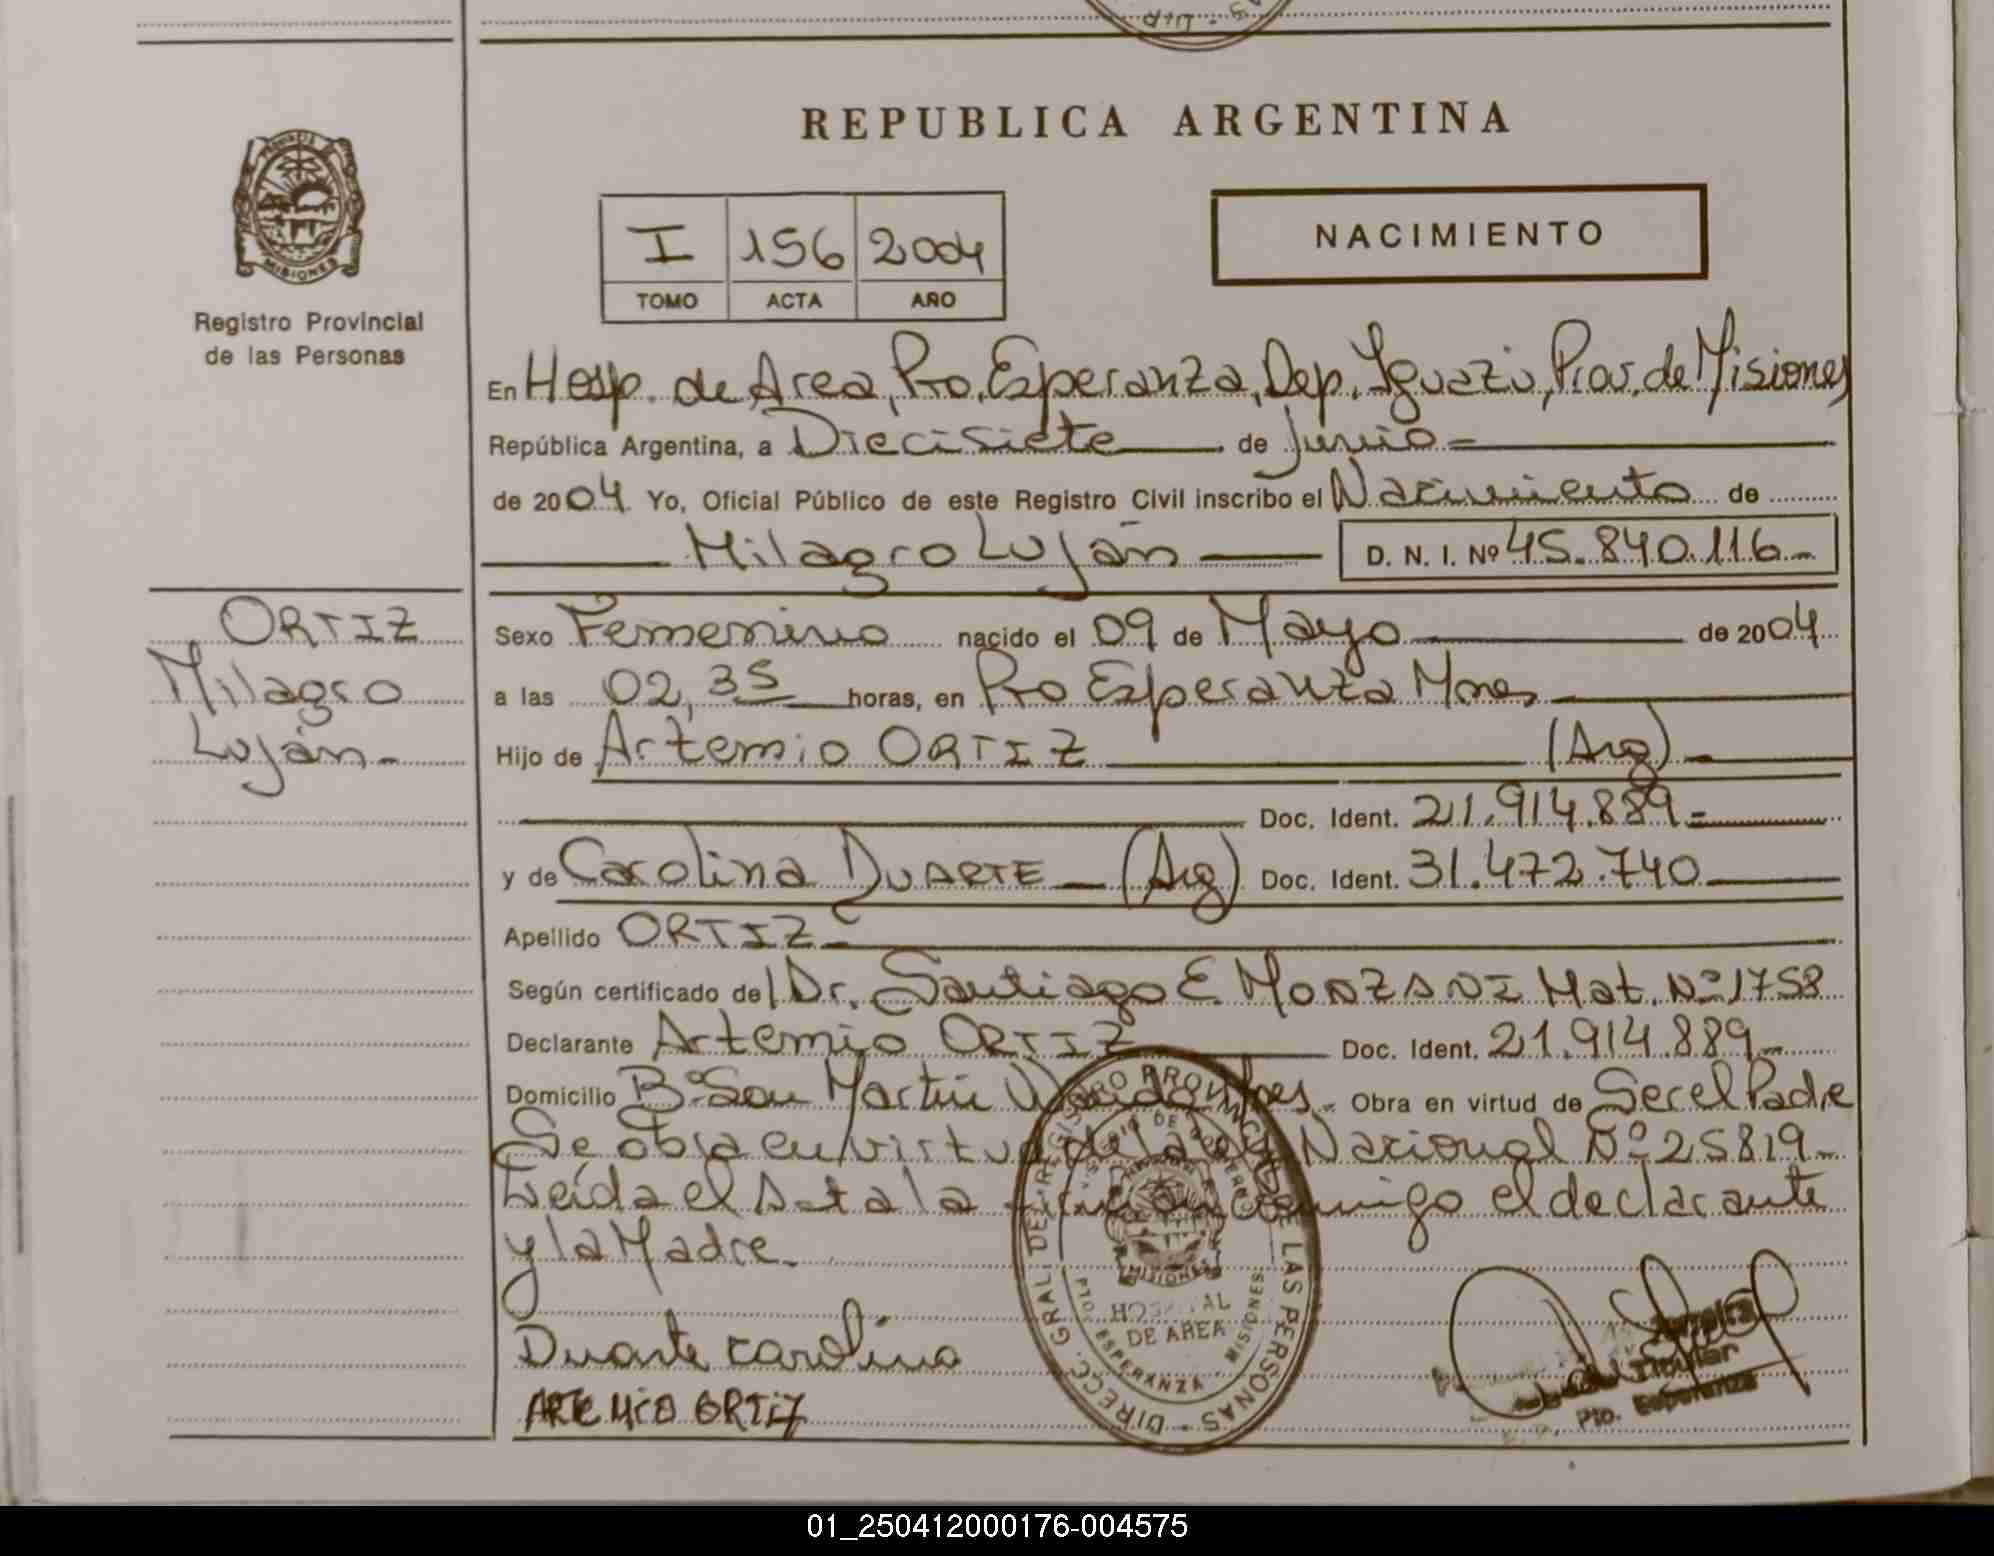 REPUBLICA ARGENTINA
MISIONES
Registro Provincial
de las Personas
I 156 2004
TOMO ACTA AÑO
NACIMIENTO
En Hosp. de Area, Pto. Esperanza, Dep. Iguazú, Prov. de Misiones
República Argentina, a Diecisiete de Junio
de 2004 Yo, Oficial Público de este Registro Civil inscribo el Nacimiento de
Milagro Luján D. N. I. Nº 45.840.116
ORTIZ
Milagro
Luján
Sexo Femenino nacido el 09 de Mayo de 2004
a las 02,35 horas, en Pto Esperanza Mnes
Hijo de Artemio ORTIZ (Arg)
Doc. Ident. 21.914.889
y de Carolina DUARTE (Arg) Doc. Ident. 31.472.740
Apellido ORTIZ
Según certificado del Dr. Santiago E. MONZANI Mat. Nº 1758
Declarante Artemio ORTIZ Doc. Ident. 21.914.889
Domicilio Bº San Martín Obra en virtud de Ser el Padre
Se obra en virtud de la Ley Nacional Nº 25819
Leída el Acta la conmigo el declarante
y la Madre.
Duarte carolina
ARTEMiO ORTiZ
DIRECC. GRAL. DEL REGISTRO PROVINCIAL DE LAS PERSONAS
MISIONES
HOSPITAL
DE AREA
PTO. ESPERANZA - MISIONES
Titular
Pto. Esperanza
01_250412000176-004575